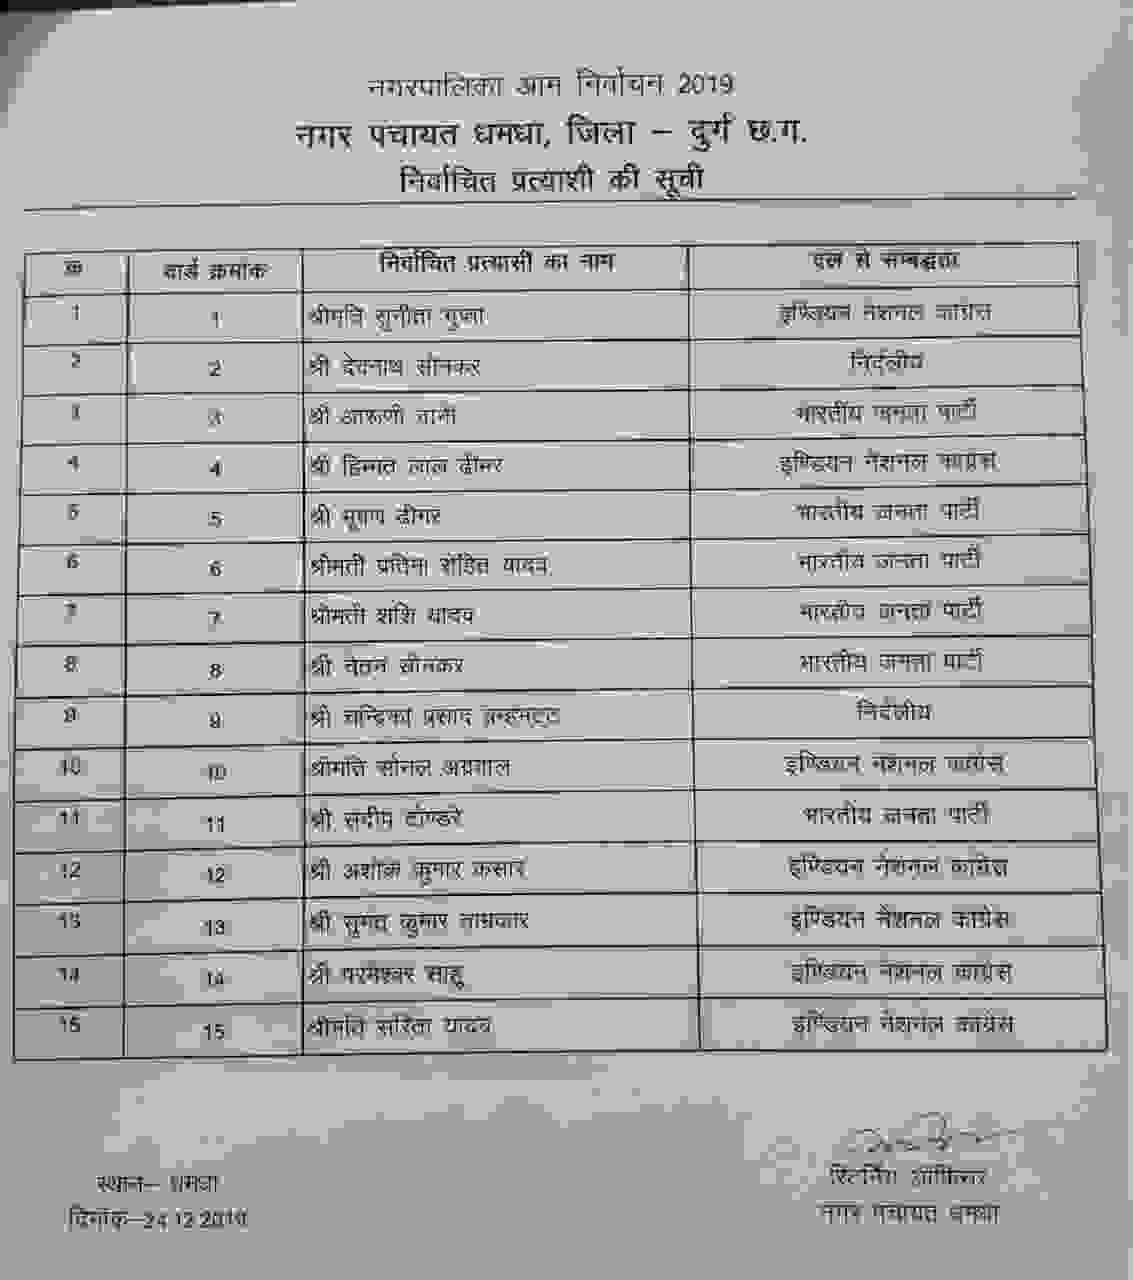 नगरपालिका आम निर्वाचन 2019
नगर पचायत धमधा, जिला – दुर्ग छ.ग.
निर्वाचित प्रत्याशी की सूची
क वार्ड क्रमांक निर्वाचित प्रत्यासी का नाम दल से सम्बद्धता
1 1 श्रीमति सुनीता गुप्ता इण्डियन नेशनल कांग्रेस
2 2 श्री देवनाथ सोनकर निर्दलीय
3 3 श्री भारतीय जनता पार्टी
4 4 श्री हिम्मत लाल ढीमर इण्डियन नेशनल कांग्रेस
5 5 श्री ढीमर भारतीय जनता पार्टी
6 6 श्रीमती प्रतिमा रोहित यादव भारतीय जनता पार्टी
7 7 श्रीमती शशि यादव भारतीय जनता पार्टी
8 8 श्री चेतन सोनकर भारतीय जनता पार्टी
9 9 श्री चन्द्रिका प्रसाद निर्दलीय
10 10 श्रीमति सोनल अग्रवाल इण्डियन नेशनल कांग्रेस
11 11 श्री संदीप भारतीय जनता पार्टी
12 12 श्री अशोक कुमार कसार इण्डियन नेशनल कांग्रेस
13 13 श्री सुमत कुमार ताम्रकार इण्डियन नेशनल कांग्रेस
14 14 श्री परमेश्वर साहू इण्डियन नेशनल कांग्रेस
15 15 श्रीमति सरिता यादव इण्डियन नेशनल कांग्रेस
स्थान– धमधा
दिनांक–24.12.2019
रिटर्निंग ऑफिसर
नगर पंचायत धमधा